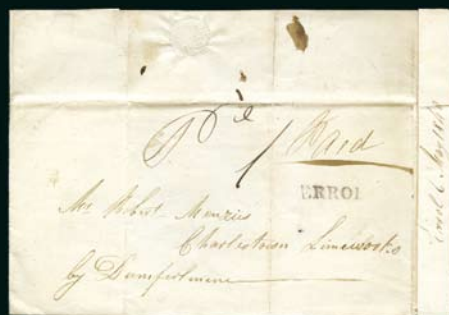 Pd 1 Paid
ERROL
Mr Robert Menzies
Charlestown Limeworks
by Dumfermline
Errol 6